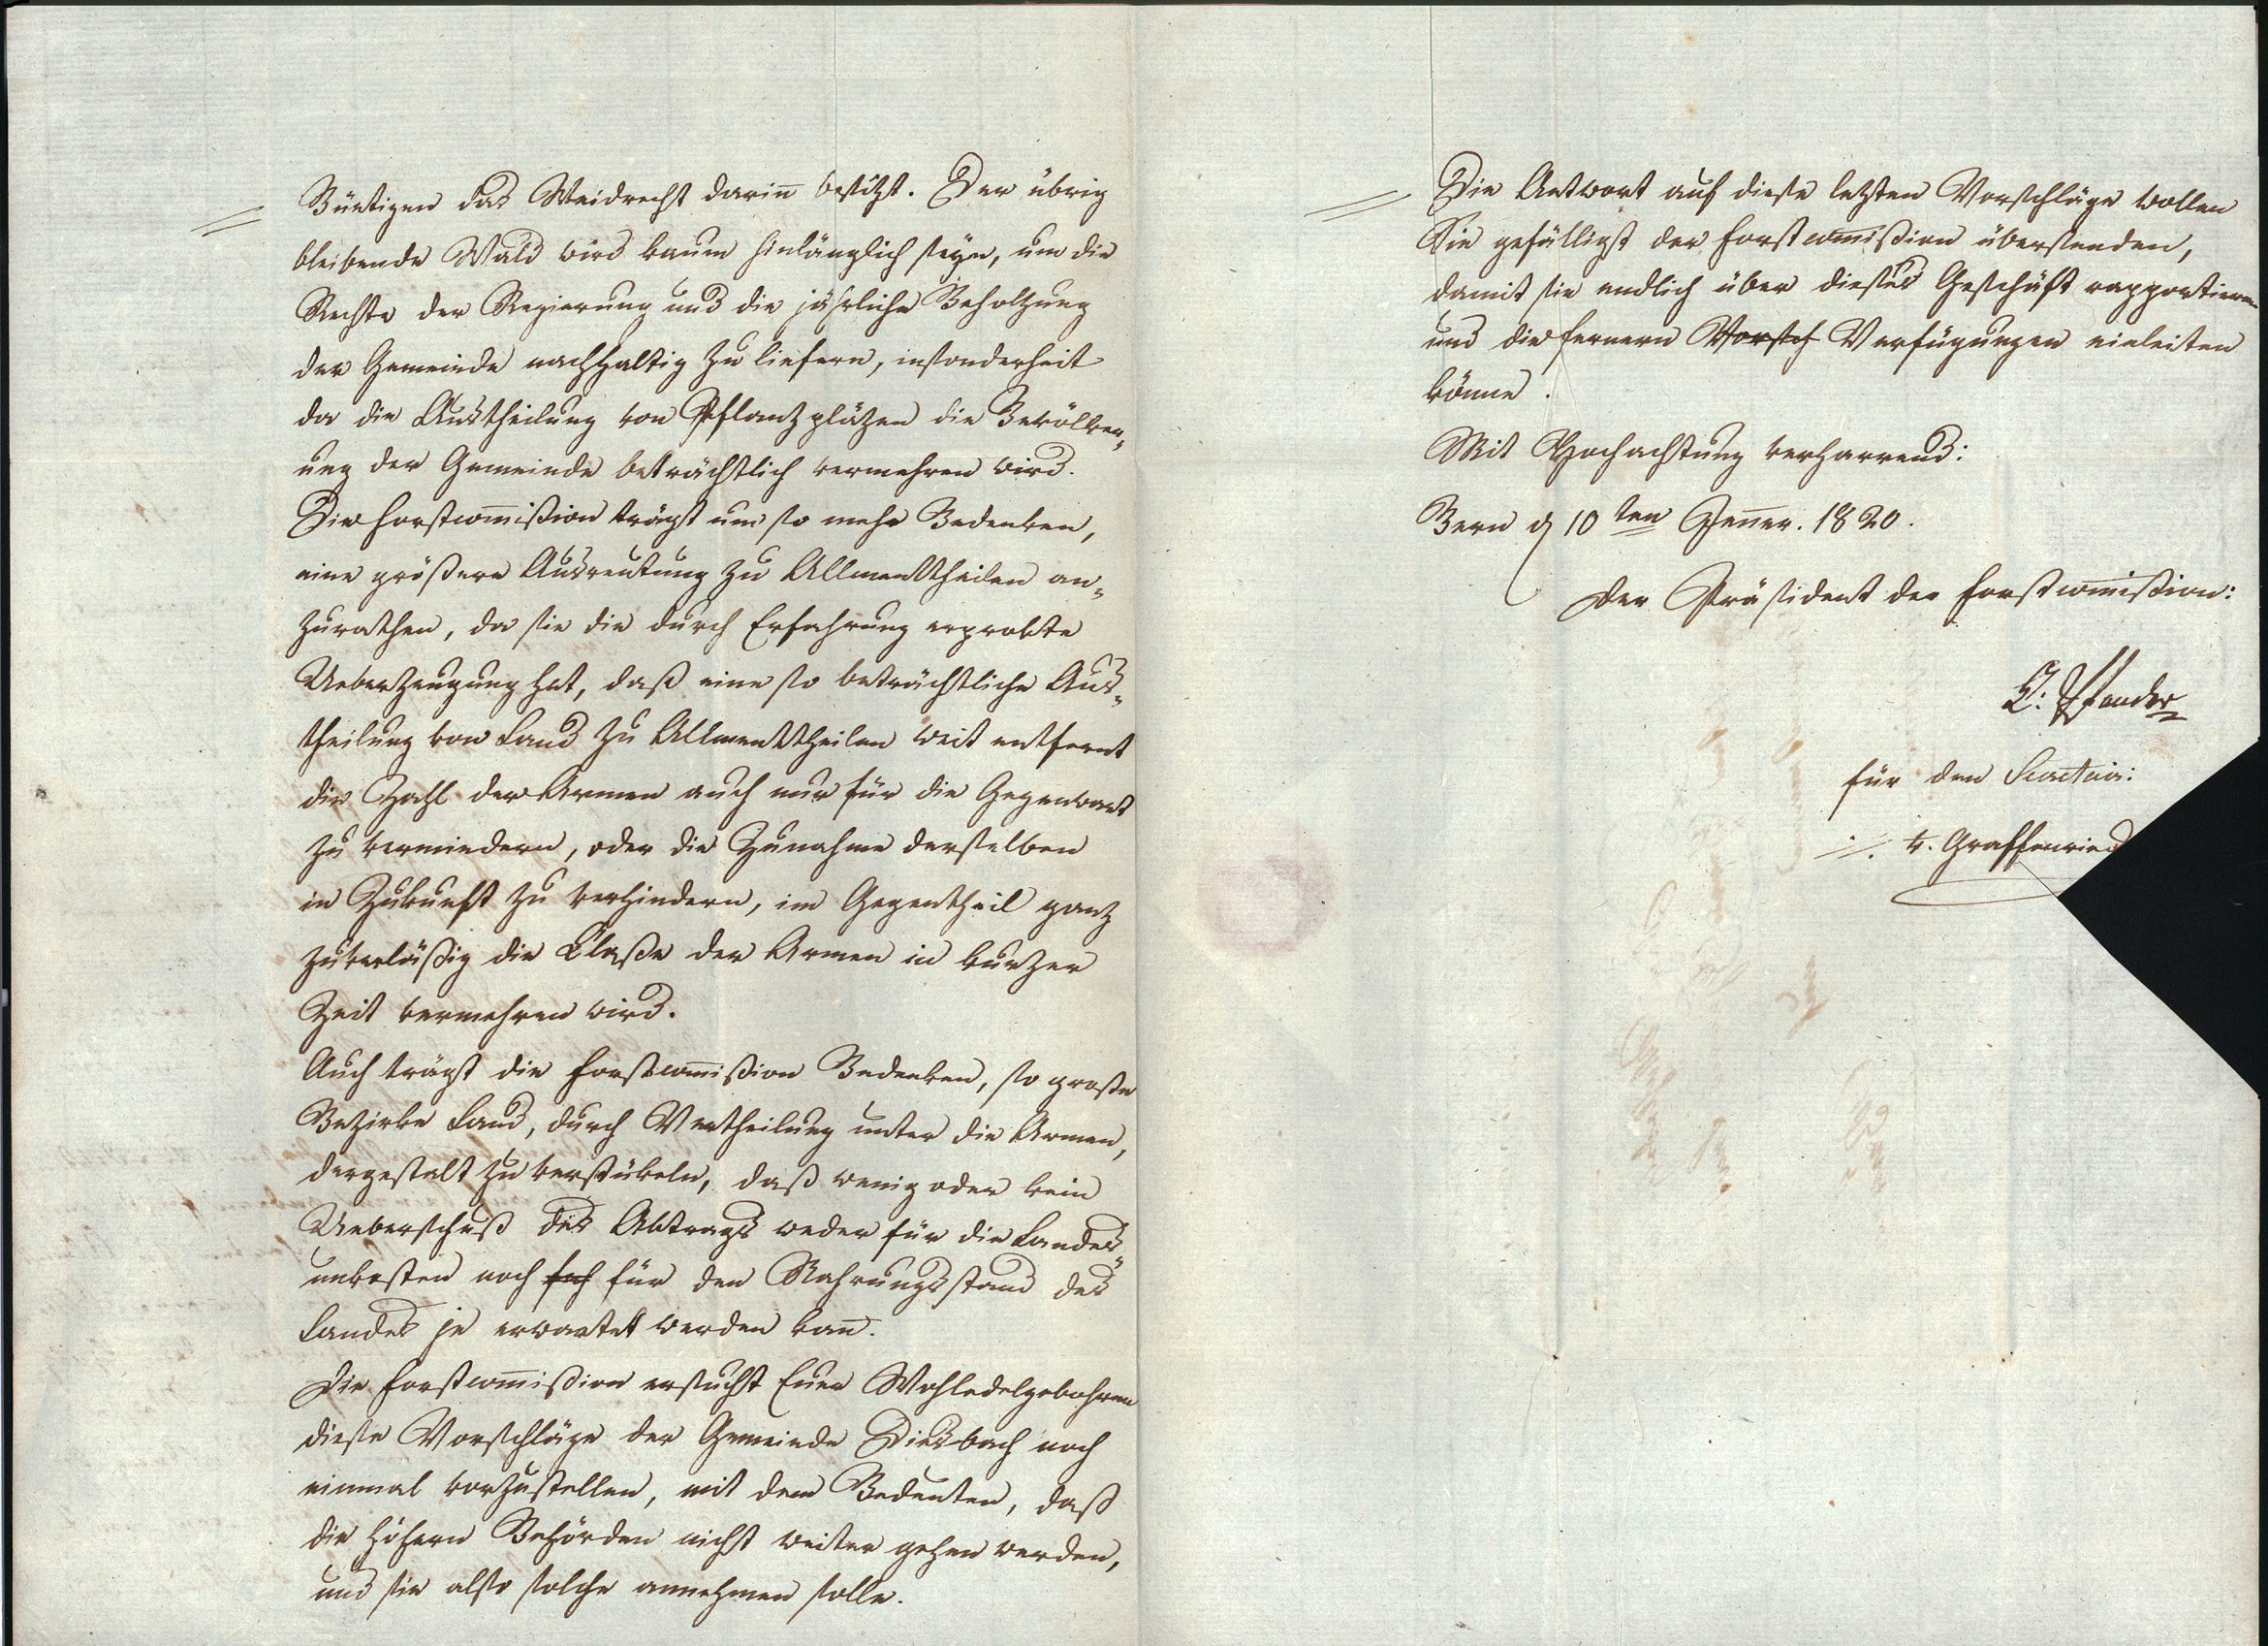 Büetigen das Weidrecht dariñ besitzt. Der übrig
bleibende Wald wird kaum hinlänglich seyn, um die
Rechte der Regierung und die jährliche Beholtzung
der Gemeinde nachhaltig zu liefern, insonderheit
da die Austheilung von Pflanzpläzen die Bevölker„
ung der Gemeinde beträchtlich vermehren wird.
Die Forstcom̄ißion trägt um so mehr Bedenken,
eine größere Ausreutung zu Allmenttheilen an„
zurathen, da sie die durch Erfahrung erprobte
Ueberzeugung hat, daß eine so beträchtliche Aus„
theilung von Land zu Allmenttheilen weit entfernt
die Zahl der Armen auch nur für die Gegenwart
zu vermindern, oder die Zunahme derselben
in Zukunft zu verhindern, im Gegentheil ganz
zuverläßig die Claße der Armen in kurzer
Zeit vermehren wird.
Auch trägt die Forstcom̄ißion Bedenken, so große
Bezirke Land, durch Vertheilung unter die Armen,
dergestalt zu verstükeln, daß wenig oder kein
Ueberschuß des Abtrags weder für die Landes„
unkosten noch für den Nahrungsstand des
Landes je erwartet werden kañ.
Die Forstcom̄ißion ersucht Euer Wohledelgebohren
diese Vorschläge der Gemeinde Diesbach noch
einmal vorzustellen, mit dem Bedeuten, daß
die höhern Behörden nicht weiter gehen werden,
und sie also solche annehmen solle.
Die Antwort auf diese letzten Vorschläge wollen
Sie gefälligst der Forstcom̄ißion übersenden,
damit sie endlich über dieses Geschäft rapportieren
und die fernern Vorsch Verfügungen einleiten
könne.
Mit Hochachtung verharrend:
Bern d 10ten Jeñer. 1820.
Der Präsident der Forstcom̄ißion:
Pfander
für den Secretair:
v. Graffenried